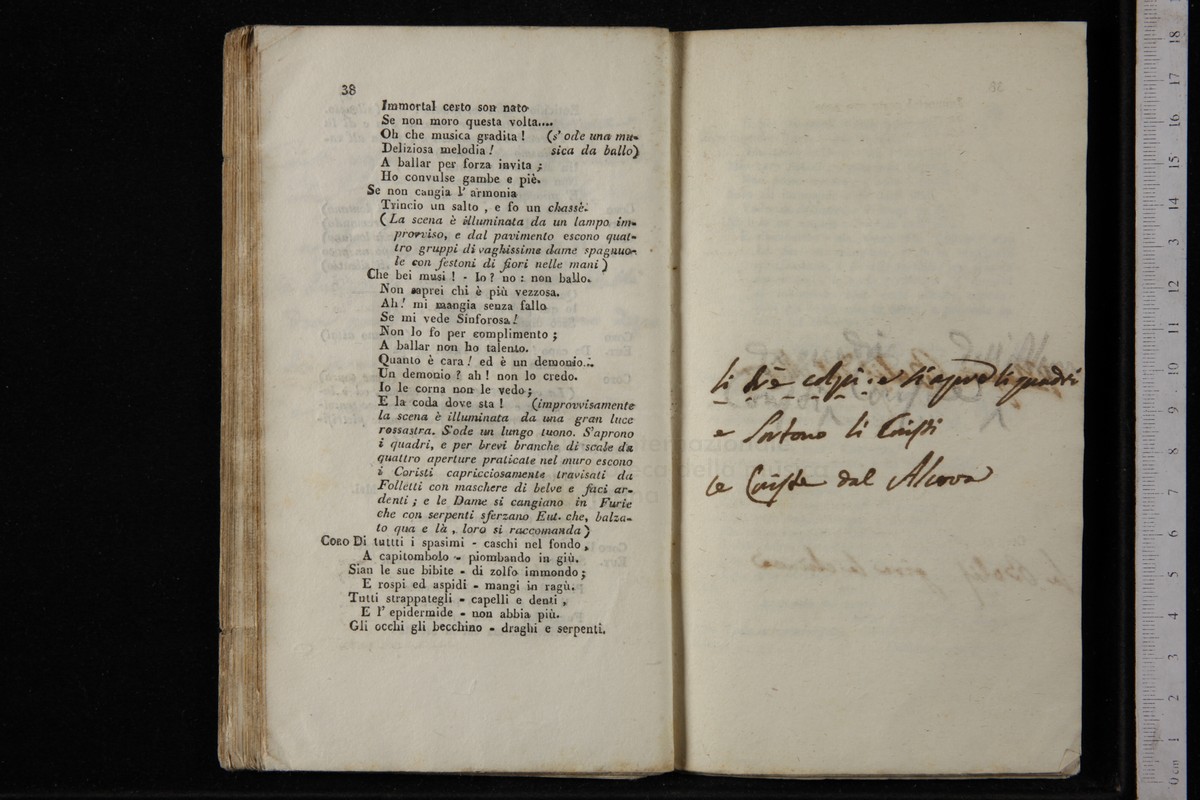 38
Immortal certo son nato
Se non moro questa volta....
Oh che musica gradita ! (s' ode una mu-
Deliziosa melodia ! sica da ballo)
A ballar per forza invita ;
Ho convulse gambe e piè.
Se non cangia l' armonia
Trincio un salto , e fo un chassè.
( La scena è illuminata da un lampo im-
provviso, e dal pavimento escono quat-
tro gruppi di vaghissime dame spagnuo-
le con festoni di fiori nelle mani )
Che bei musi ! - Io ? no : non ballo.
Non saprei chi è più vezzosa.
Ah ! mi mangia senza fallo
Se mi vede Sinforosa !
Non lo fo per complimento ;
A ballar non ho talento.
Quanto è cara ! ed è un demonio...
Un demonio ? ah ! non lo credo.
Io le corna non le vedo ;
E la coda dove sta ! (improvvisamente
la scena è illuminata da una gran luce
rossastra. S'ode un lungo tuono. S'aprono
i quadri, e per brevi branche di scale da
quattro aperture praticate nel muro escono
i Coristi capricciosamente travisati da
Folletti con maschere di belve e faci ar-
denti ; e le Dame si cangiano in Furie
che con serpenti sferzano Eut. che, balza-
to qua e là , loro si raccomanda )
CORO Di tuttti i spasimi - caschi nel fondo ,
A capitombolo - piombando in giù.
Sian le sue bibite - di zolfo immondo ;
E rospi ed aspidi - mangi in ragù.
Tutti strappategli - capelli e denti ,
E l' epidermide - non abbia più.
Gli occhi gli becchino - draghi e serpenti.
li colpi e si apre li quadri
e Sortono li Coristi
le Coriste dal Alcova
0 cm 1 2 3 4 5 6 7 8 9 10 11 12 13 14 15 16 17 18